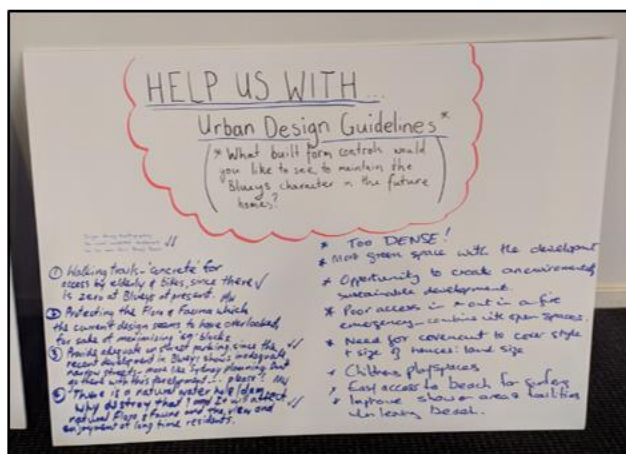 HELP US WITH...
Urban Design Guidelines*
(* What built form controls would
you like to see, to maintain the
Blueys character in the future
homes?)
① Walking track - 'concrete' for
access by elderly & bikes, since there
is zero at Blueys at present.
② Protecting the Flora & Fauna which
the current design seems to have overlooked,
for sake of maximising 'sq' blocks
③ Provide adequate parking, since the
recent development in Blueys shows inadequate
narrow streets - more like Sydney planning. Don't
go there with this development... please!
There is a natural water hole/dam,
why destroy that? and it will affect
natural Flora & Fauna and the view and
enjoyment of long time residents.
* TOO DENSE!
* More green space with the development
* Opportunity to create an environmentally
sustainable development.
* Poor access in & out in a fire
emergency - combine with open spaces.
* Need for covenant to cover style
& size of houses: land size
* Childrens playspaces
* Easy access to beach for surfers
* Improve shower area & facilities
when leaving beach.